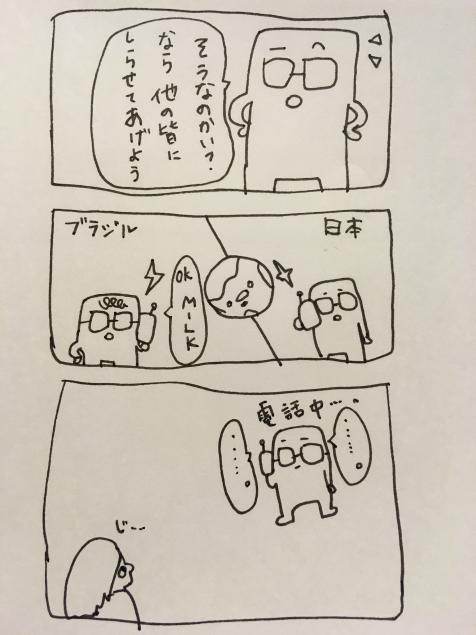 そうなのかい?
なら他の皆に
しらせてあげよう
日本
ブラジル
OK MILK
電話中……
………。
………。
じー…